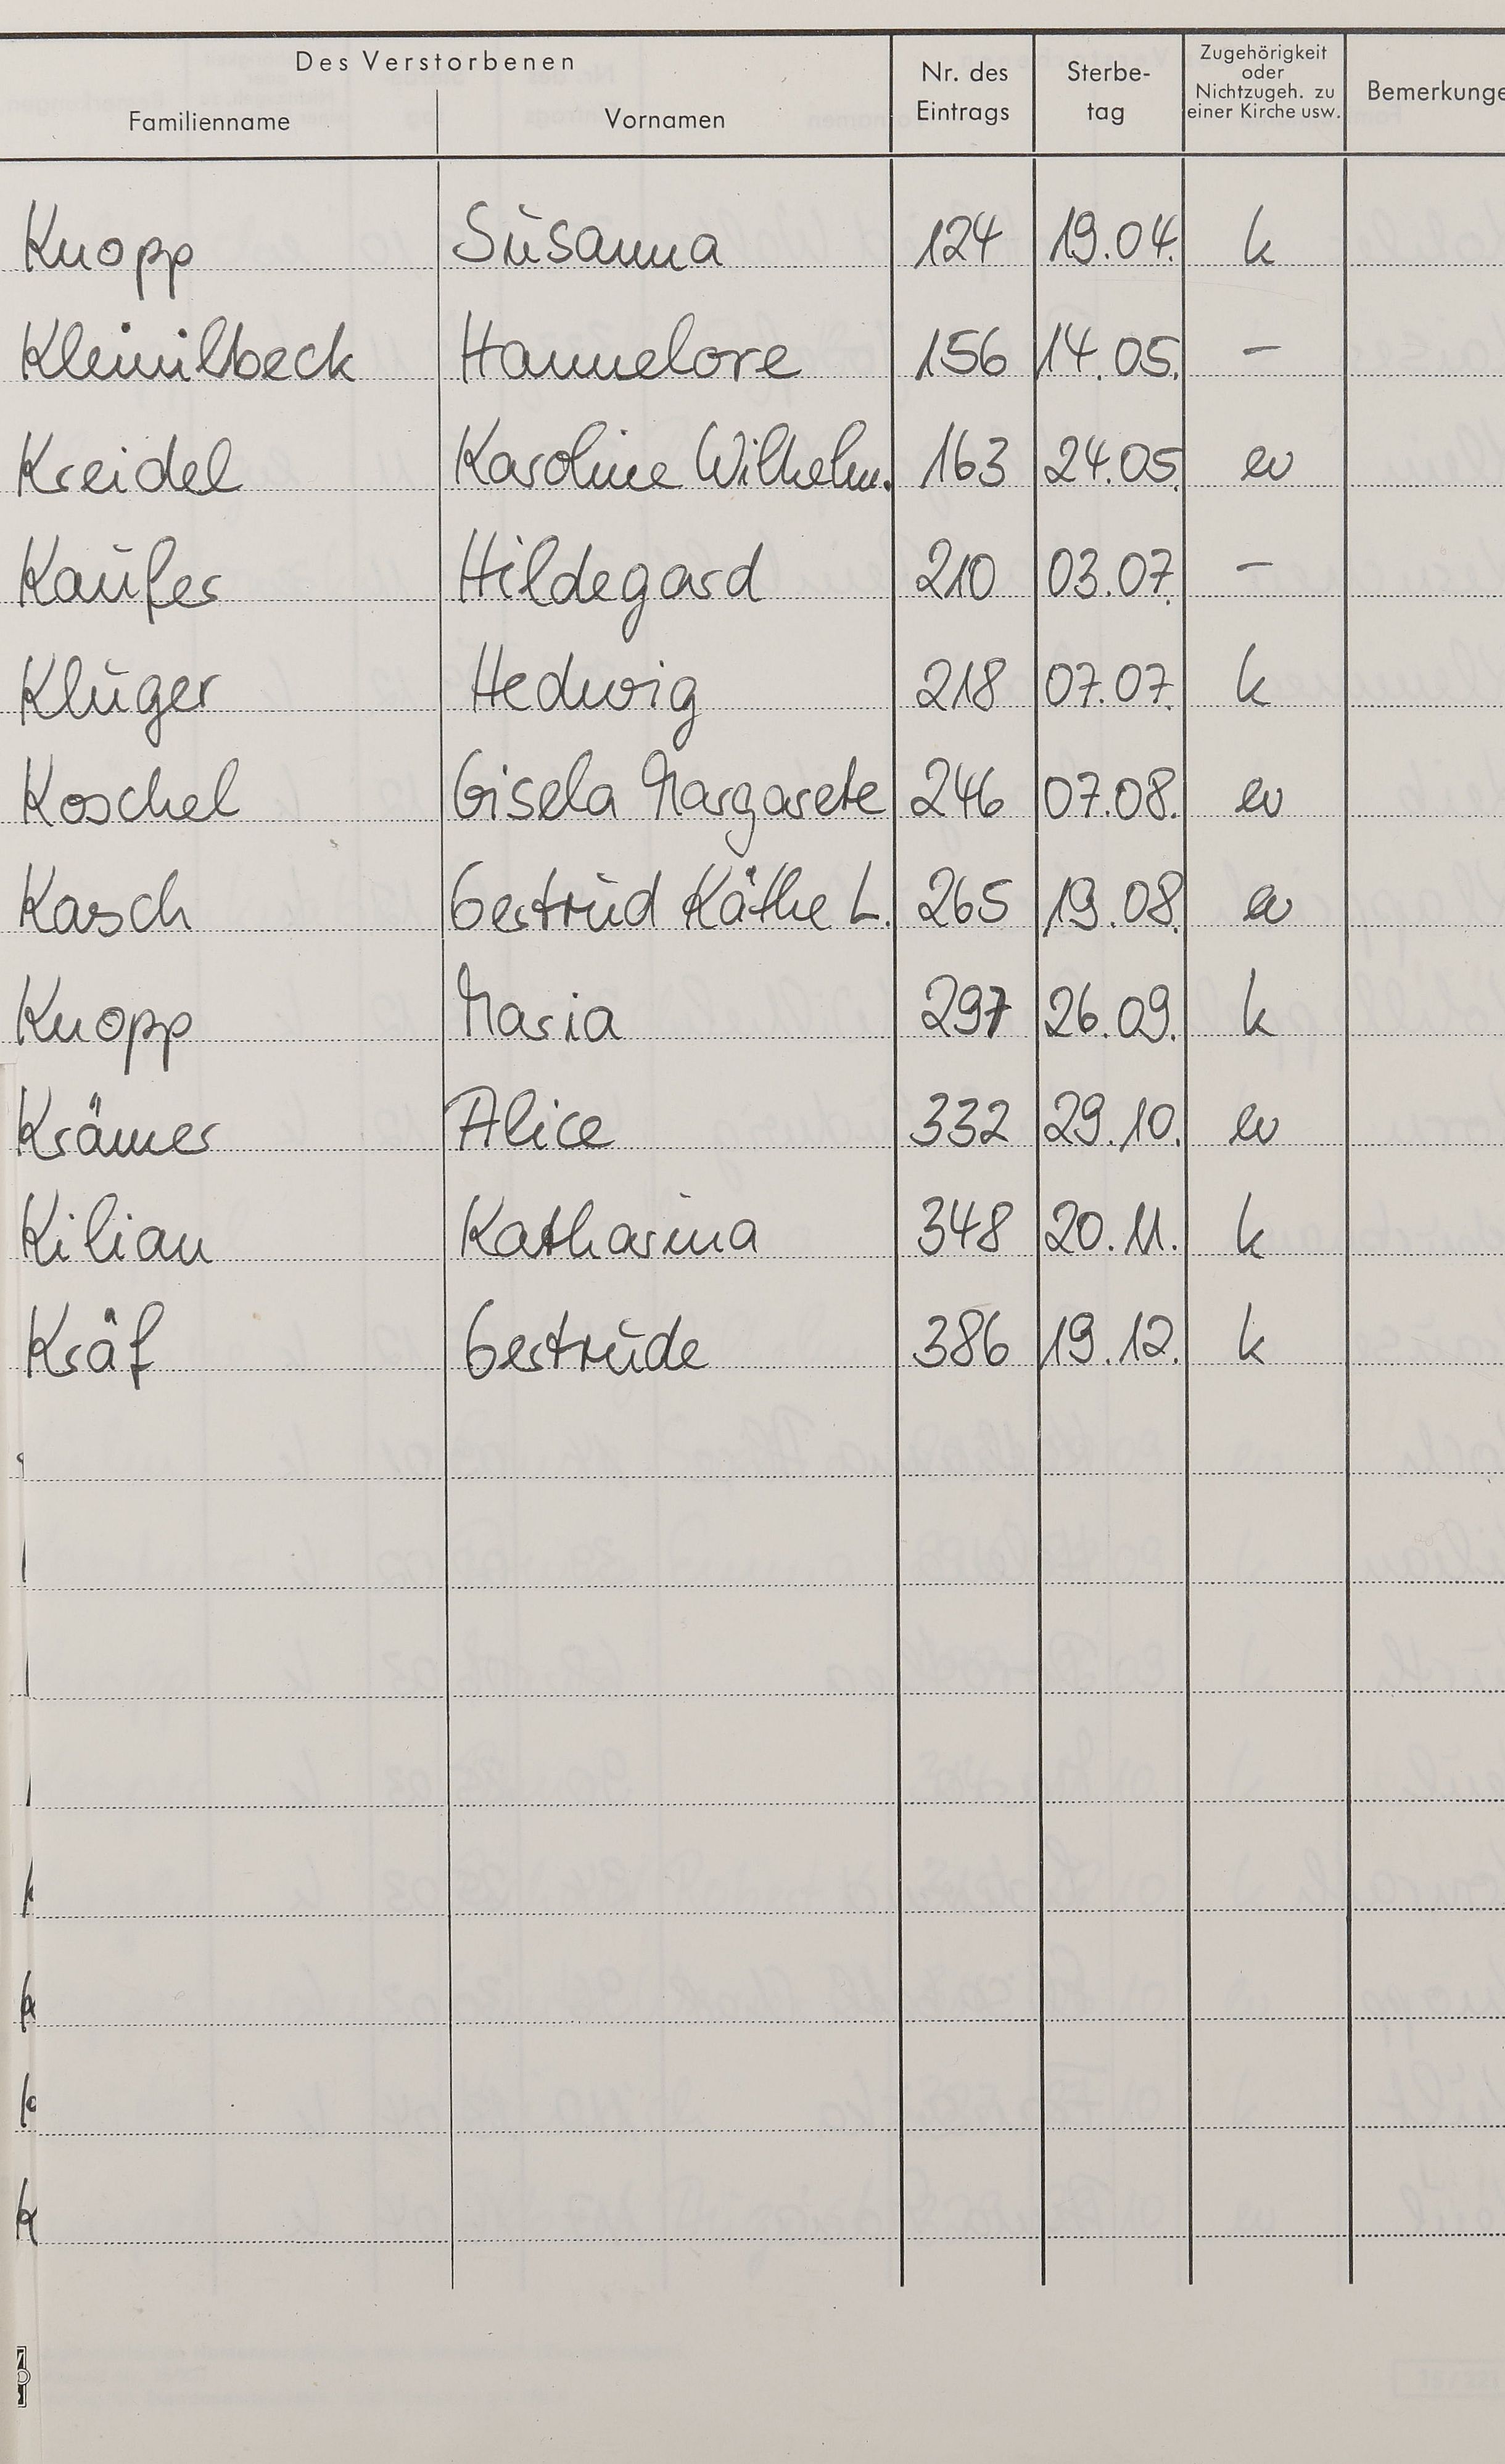 Des Verstorbenen
Familienname Vornamen Nr. des Eintrags Sterbe-tag Zugehörigkeit oder Nichtzugeh. zu einer Kirche usw. Bemerkunge
Knopp Susanna 124 19.04. k
Kleinilbeck Hannelore 156 14.05. –
Kreidel Karoline Wilhelm. 163 24.05. ev
Kaufer Hildegard 210 03.07. –
Kluger Hedwig 218 07.07. k
Koschel Gisela Margarete 246 07.08. ev
Kasch Gertrud Käthe L. 265 19.08. ev
Knopp Maria 297 26.09. k
Krämer Alice 332 29.10. ev
Kilian Katharina 348 20.11. k
Kräf Gertrude 386 19.12. k